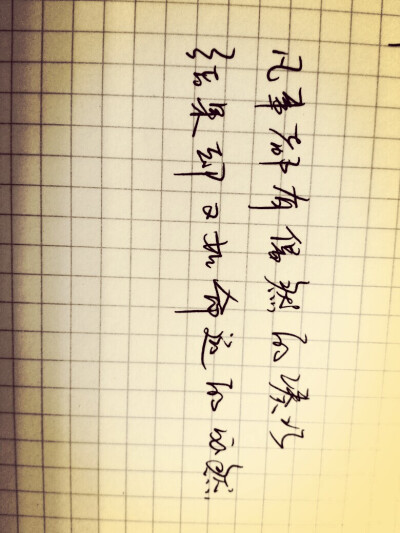 凡事都有偶然的凑巧
结果却又如命运的必然